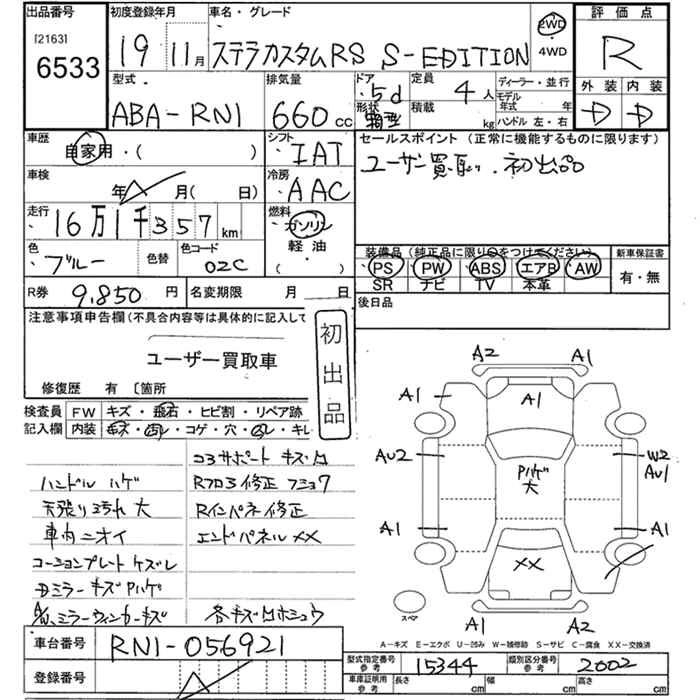 出品番号
[2163]
6533
初度登録年月
19 11月
車名・グレード
ステラカスタムRS S-EDITION
2WD
・
4WD
評価点
R
外装 内装
D D
型式
ABA-RN1
排気量
660cc
ドア
・5d
形状
箱型
定員
4人
積載
kg
ディーラー・並行
モデル年式 年
ハンドル 左・右
車歴
自家用・( )
シフト
IAT
セールスポイント (正常に機能するものに限ります)
ユーザー買取り.初出品
車検
年 月( 日)
冷房
AAC
走行
16万1千357km
燃料
ガソリン
軽・油
( )
色
ブルー
色替
色コード
02C
装備品(純正品に限り○をつけてください)
PS PW ABS エアB AW
SR ナビ TV 本革
新車保証書
有・無
R券 9,850円
名変期限 月 日
後日品
注意事項申告欄(不具合内容等は具体的に記入して
ユーザー買取車
修復歴 有 〔箇所
初出品
検査員 FW キズ・飛石・ヒビ割・リペア跡
記入欄 内装 キズ・汚レ・コゲ・穴・
コアサポート キズM
ハンドル ハゲ
天張り汚れ 大
車内ニオイ
コーションプレート ケズレ
Rフロア修正
Rインパネ修正
エンドパネルXX
Dミラーキズ Pハゲ
ミラーウィンカーキズ
各キズMホシュウ
車台番号 RN1-056921
登録番号
A2 A1
A1 A1
AU2 W2
AU1
Pハゲ
大
A1 A1
XX
スペア
A1 A2
A-キズ E-エクボ U-凹み W-補修跡 S-サビ C-腐食 XX-交換済
型式指定番号 参考 15344
類別区分番号 参考 2002
車庫証明用 参考 長さ cm 幅 cm 高さ cm